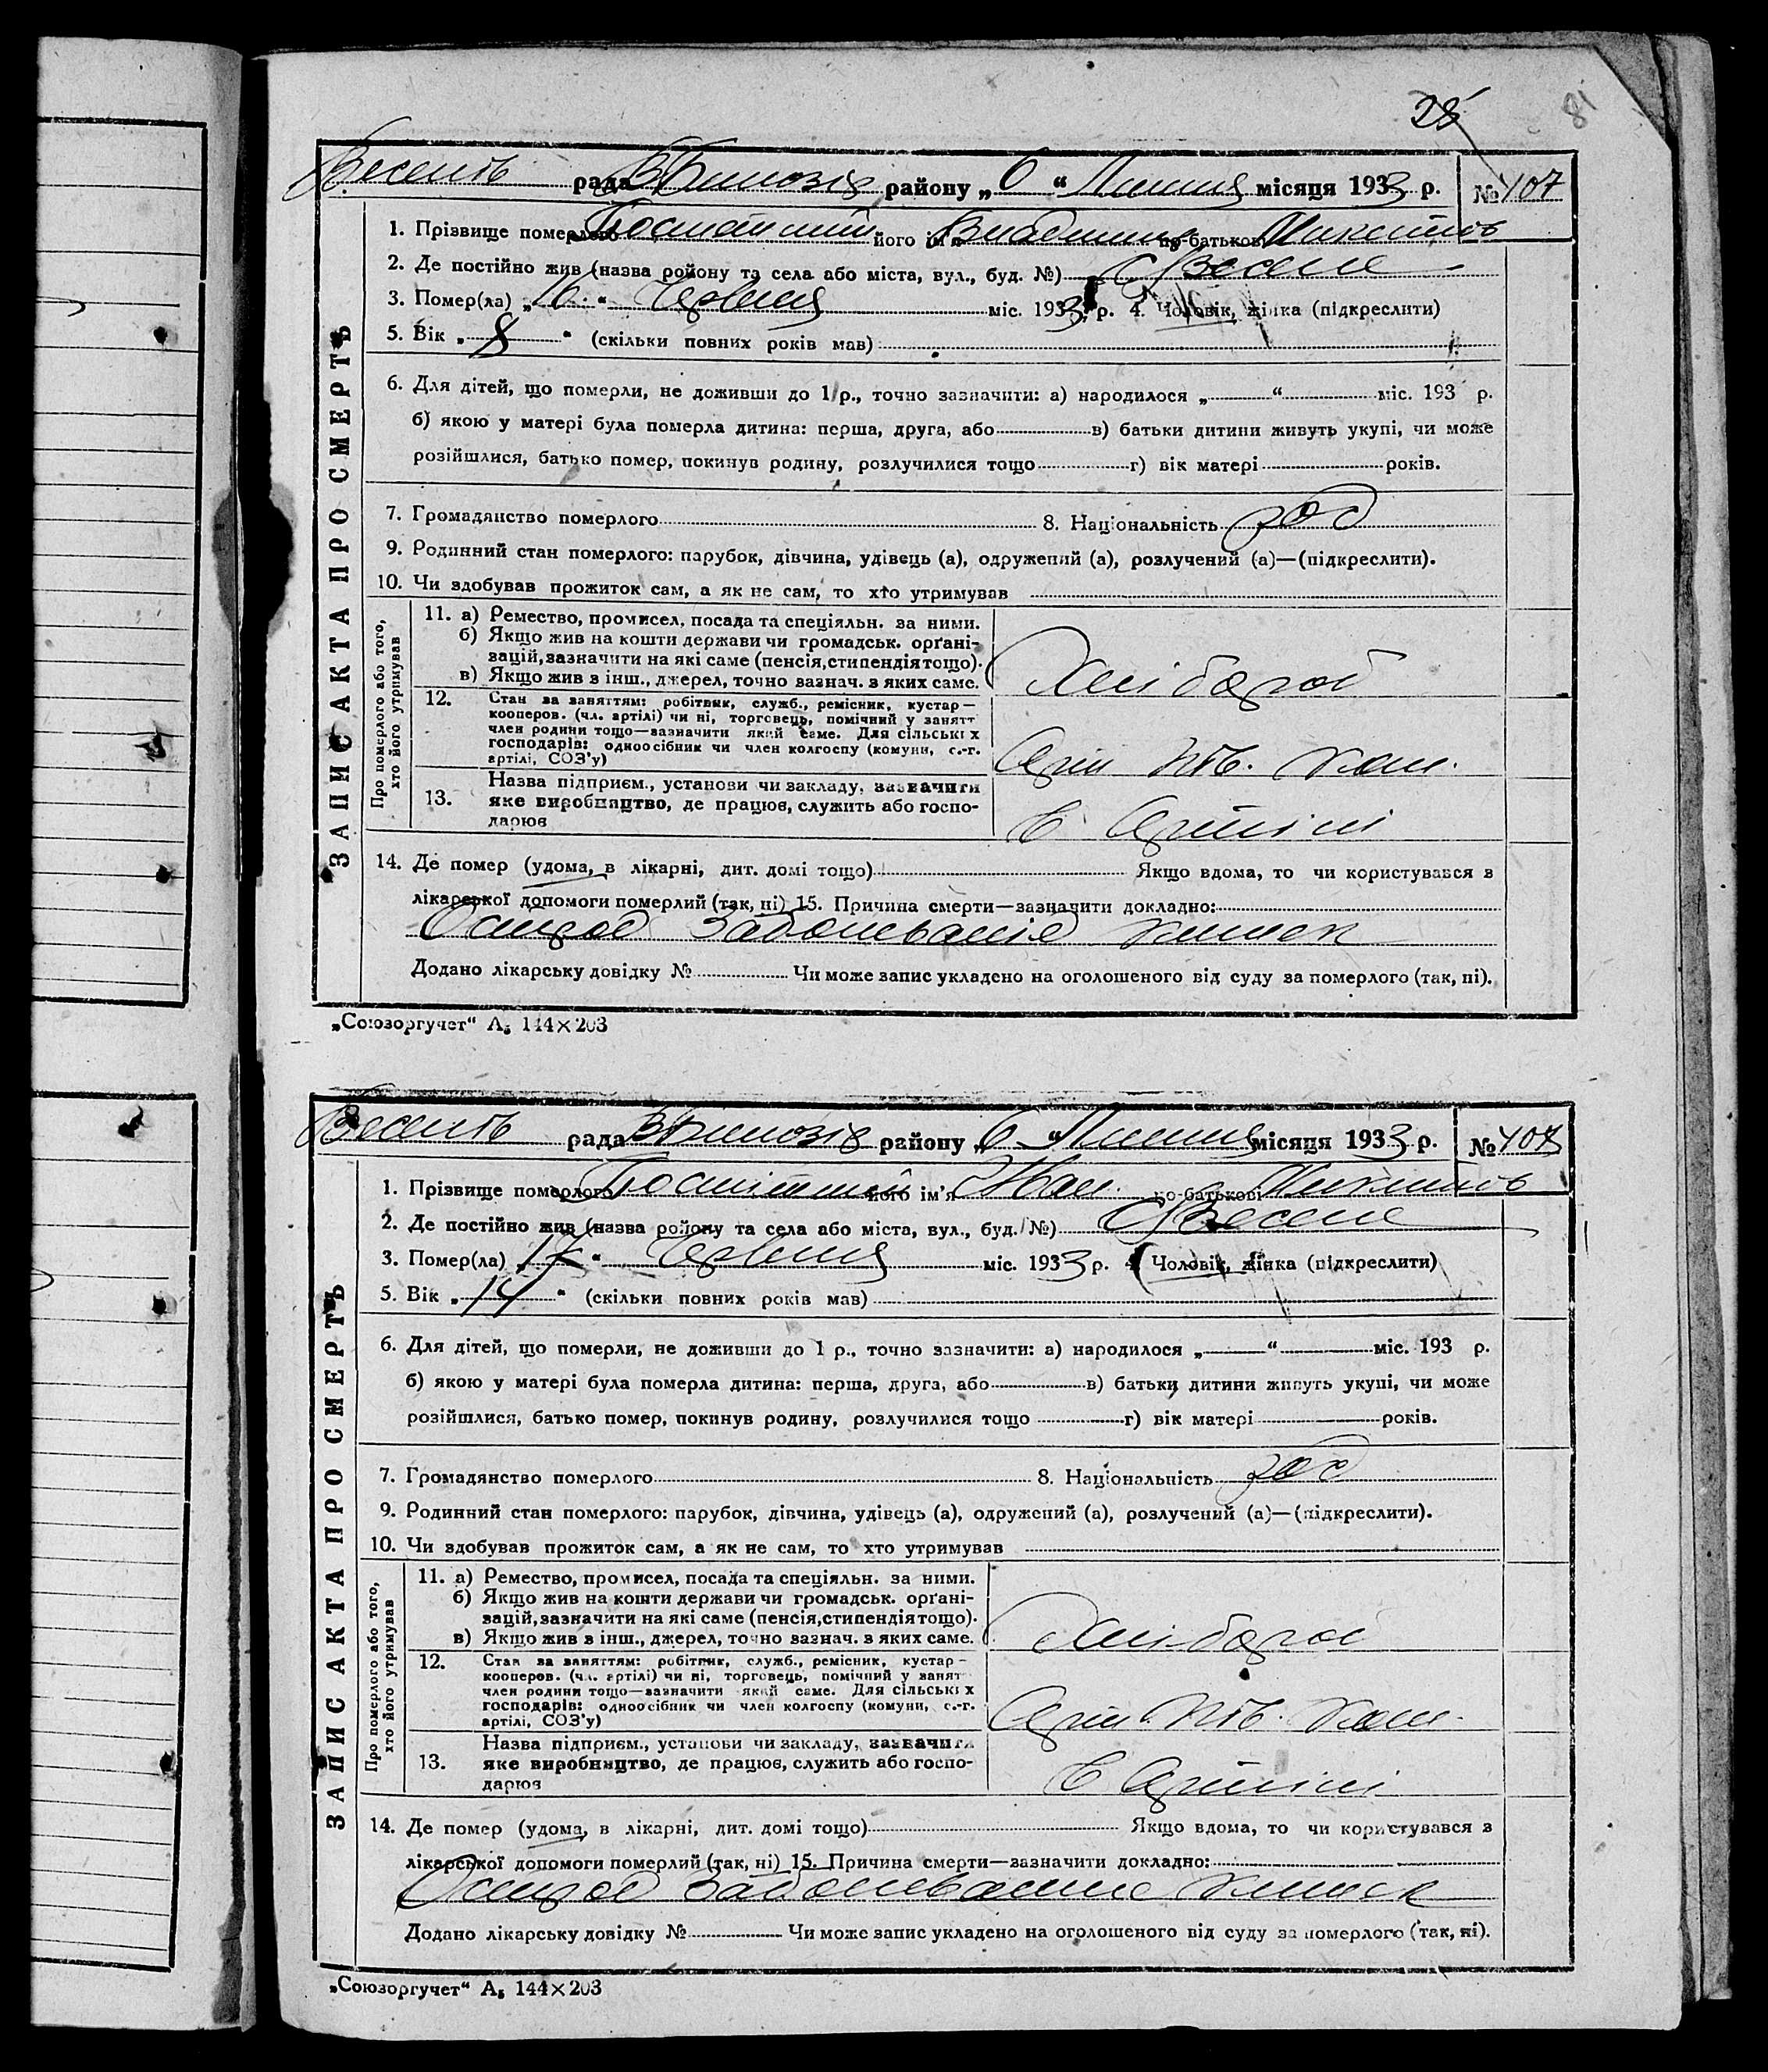 28
81
рада района „ 6 “ Липня місяця 1933 р. № 407
ЗАПИС АКТА ПРО СМЕРТЬ
1. Прізвище померлого його ім'я по-батькові
2. Де постійно жив (назва району та села або міста, вул., буд. №) с Веселе
3. Помер(ла) „ 16 “ Червня міс. 1933 р. 4. Чоловік, жінка (підкреслити)
5. Вік „ 8 “ (скільки повних років мав)
6. Для дітей, що померли, не доживши до 1 р., точно зазначити: а) народилося „ “ міс. 193 р.
б) якою у матері була померла дитина: перша, друга, або в) батьки дитини живуть укупі, чи може
розійшлися, батько помер, покинув родину, розлучилися тощо г) вік матері років.
7. Громадянство померлого 8. Національність
9. Родинний стан померлого: парубок, дівчина, удівець (а), одружений (а), розлучений (а)—(підкреслити).
10. Чи здобував прожиток сам, а як не сам, то хто утримував
Про померлого або того, хто його утримував
11. а) Ремество, промисел, посада та спеціяльн. за ними.
б) Якщо жив на кошти держави чи громадськ. орґані-
зацій, зазначити на які саме (пенсія, стипендія тощо).
в) Якщо жив з інш., джерел, точно зазнач. з яких саме. Хлібороб
12. Стан за заняттям: робітник, служб., ремісник, кустар—
кооперов. (чл. артілі) чи ні, торговець, помічний у занятт
член родини тощо—зазначити який саме. Для сільських
господарів: одноосібник чи член колгоспу (комуни, с.-г.
артілі, СОЗ'у)
13. Назва підприєм., установи чи закладу, зазначити
яке виробництво, де працює, служить або госпо-
дарює В Артілі
14. Де помер (удома, в лікарні, дит. домі тощо) Якщо вдома, то чи користувався з
лікарської допомоги померлий (так, ні) 15. Причина смерти—зазначити докладно:
Острое Заболеваніе кишек
Додано лікарську довідку № Чи може запис укладено на оголошеного від суду за померлого (так, ні).
„Союзоргучет“ А₅ 144×203
рада району „ 6 “ Липня місяця 1933 р. № 408
ЗАПИС АКТА ПРО СМЕРТЬ
1. Прізвище померлого його ім'я Іван по-батькові
2. Де постійно жив (назва району та села або міста, вул., буд. №) с Веселе
3. Помер(ла) „ 17 “ Червня міс. 1933 р. 4. Чоловік, жінка (підкреслити)
5. Вік „ 14 “ (скільки повних років мав)
6. Для дітей, що померли, не доживши до 1 р., точно зазначити: а) народилося „ “ міс. 193 р.
б) якою у матері була померла дитина: перша, друга, або в) батьки дитини живуть укупі, чи може
розійшлися, батько помер, покинув родину, розлучилися тощо г) вік матері років.
7. Громадянство померлого 8. Національність
9. Родинний стан померлого: парубок, дівчина, удівець (а), одружений (а), розлучений (а)—(підкреслити).
10. Чи здобував прожиток сам, а як не сам, то хто утримував
Про померлого або того, хто його утримував
11. а) Ремество, промисел, посада та спеціяльн. за ними.
б) Якщо жив на кошти держави чи громадськ. орґані-
зацій, зазначити на які саме (пенсія, стипендія тощо).
в) Якщо жив з інш., джерел, точно зазнач. з яких саме. Хлібороб
12. Стан за заняттям: робітник, служб., ремісник, кустар-
кооперов. (чл. артілі) чи ні, торговець, помічний у занят
член родини тощо—зазначити який саме. Для сільських
господарів: одноосібник чи член колгоспу (комуни, с.-г.
артілі, СОЗ'у)
13. Назва підприєм., установи чи закладу, зазначити
яке виробництво, де працює, служить або госпо-
дарює В Артілі
14. Де помер (удома, в лікарні, дит. домі тощо) Якщо вдома, то чи користувався з
лікарської допомоги померлий (так, ні) 15. Причина смерти—зазначити докладно:
Острое Заболевание кишек
Додано лікарську довідку № Чи може запис укладено на оголошеного від суду за померлого (так, ні).
„Союзоргучет“ А₅ 144×203